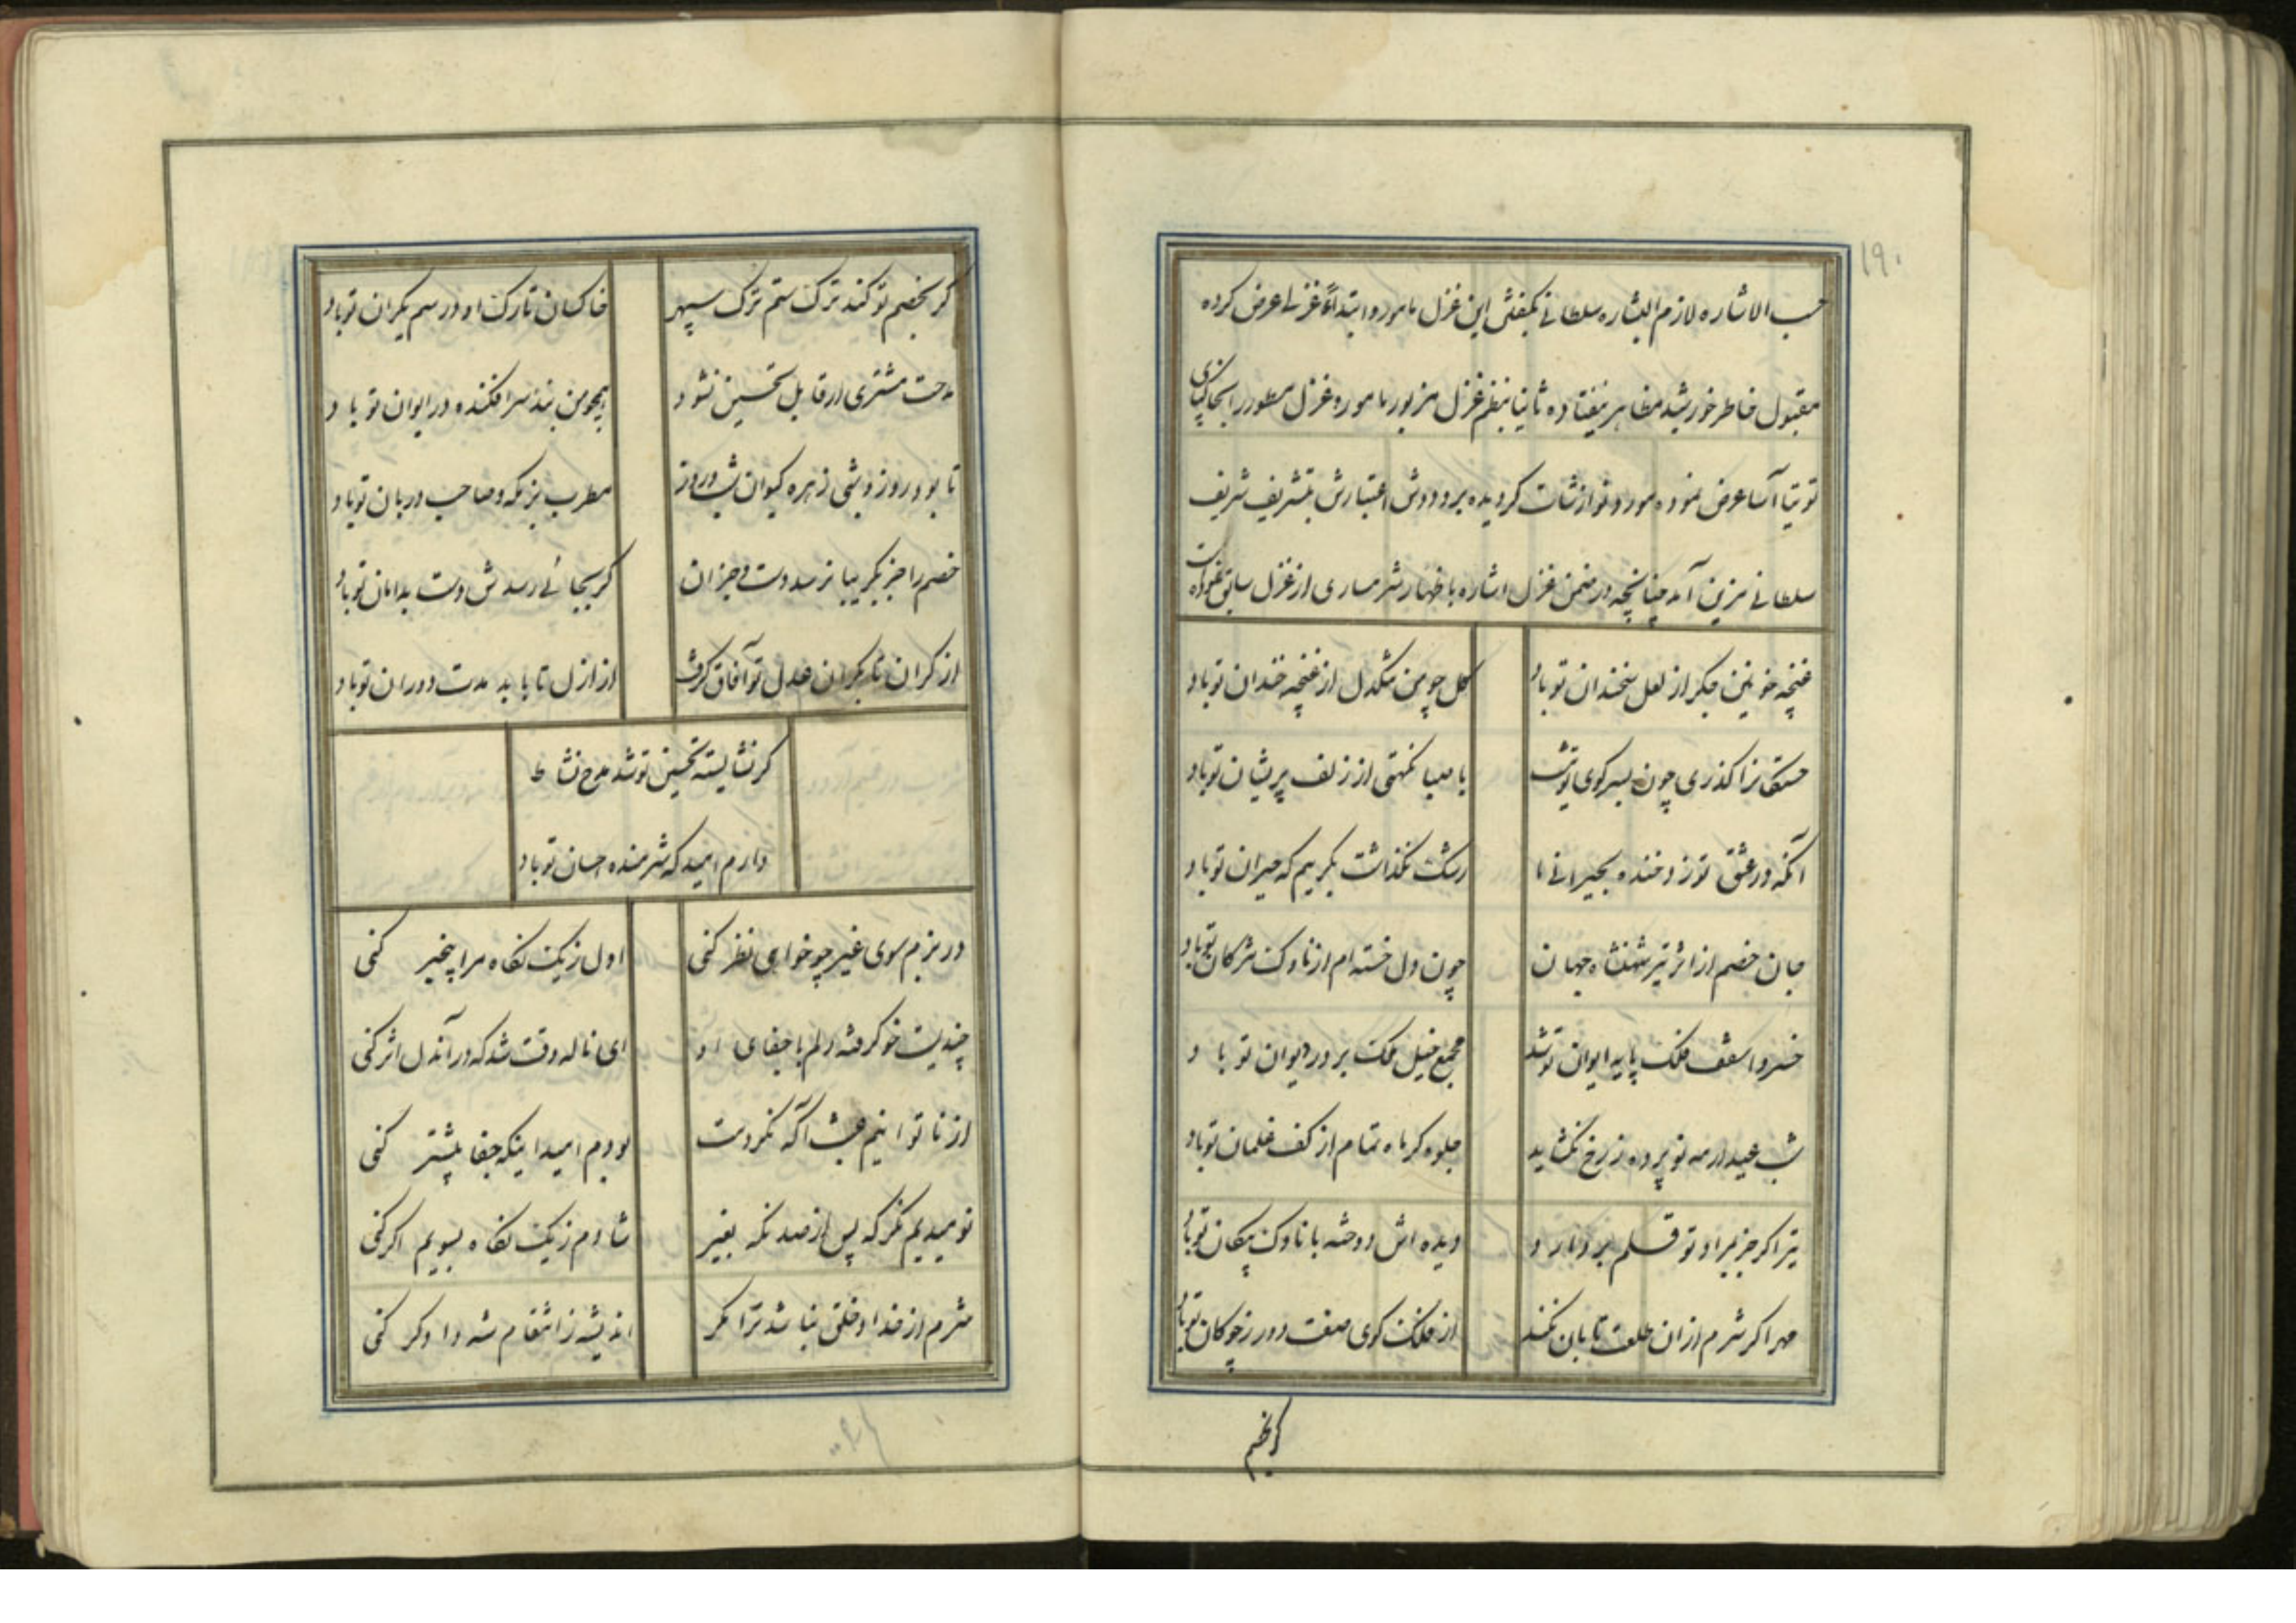 ۱۹۰
حسب الاشاره لازم البشاره سلطانی بگفتن این غزل مامور و ابتداءً غزلی عرض کرده
مقبول خاطر خورشید مظاهر نیفتاده ثانیا بنظم غزل مزبور مامور و غزل مسطور را بخاکپای
توتیا آسا عرض نموده مورد نوازشات گردیده برو دوش اعتبارش بتشریف شریف
سلطانی مزین آمد چنانچه در ضمن غزل اشاره باظهار شرمساری از غزل سابق نموده است
غنچه خونین جگر از لعل سخندان تو باد گل چو من تنگدل از غنچه خندان تو باد
گذری چون بسر کوی تو نیست با صبا نکهتی از زلف پریشان تو باد
آنکه در عشق تو زد خنده بحیرانی ما رشک نگذاشت بگریم که حیران تو باد
جان خصم از اثر تیر شهنشاه جهان چون دل خسته‌ام از ناوک مژگان تو باد
خسروا سقف فلک پایه ایوان تو شد مجمع خیل ملک بر در دیوان تو باد
شب عید ار مه نو پرده ز رخ نگشاید جلوه گر ماه تمام از کف غلمان تو باد
تیر اگر جز بمراد تو قلم بردارد دیده اش دوخته با ناوک پیکان تو باد
مهر اگر شرم از ان طلعت تابان نکند از فلک کوی صفت دور ز چوکان تو باد
کر بخصم
کر بخصم تو کند ترک ستم ترک سپهر خاکسان تارک او در سم یکران تو باد
مدحت مشتری ار قابل تحسین نشود همچو من بنده سرافکنده در ایوان تو باد
تا بود روز و شبی زهره و کیوان شب و روز مطرب بزمگه و صاحب دربان تو باد
خصم را جز بگریبا نرسد دست و جز ان کر بجائی رسدش دست بدامان تو باد
از کران تا بکران عدل تو آفاق گرفت از ازل تا بابد مدت دوران تو باد
کر نشایسته تحسین تو شد مدح نشاط
دارم امید که شرمنده احسان تو باد
در بزم سوی غیر چو خواهی نظر کنی اول ز یک نگاه مرا بیخبر کنی
چندیست خو گرفته دلم با جفای او ای ناله وقت شد که در آندل اثر کنی
از ناتوانیم عبث آگه نکردمت بودم امید اینکه جفا بیشتر کنی
نومیدیم نگر که پس از صد نگه بغیر شادم ز یک نگاه بسویم اگر کنی
شرم از خدا و خلق نباشد ترا مگر اندیشه ز انتقام شه دادگر کنی